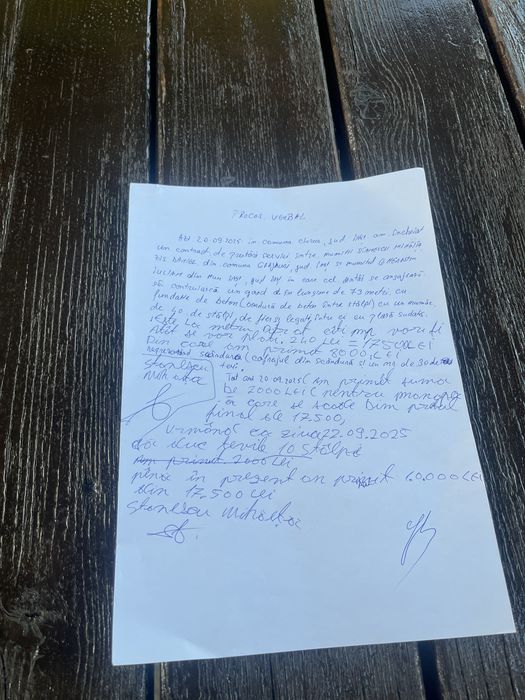 PROCES VERBAL
Azi 20.09.2025 în comuna Ciurea, jud Iași am încheiat
un contract de prestări servicii între numitii Stănescu Mihăiță
din comuna jud Iași și numitul
din Mun Iași, jud Iași în care cel dintâi se angajează
să construiască un gard de o lungime de 73 metri cu
fundație de beton (centură de beton între stâlpi) cu un număr
de 40 de stâlpi de fier și legate între ei cu plasă sudată.
este la metru patrat câți mp vor fi
atât se vor plăti. 240 Lei = 17500 LEI
Din care am primit 8000 LEI
scândură (cofrajul din scândură și un nr de 30 de
Stănescu tevi
Mihăiță
Tot azi 20.09.2025 am primit suma
de 2000 LEI (pentru manoperă
în care se scade din prețul
final de 17.500,
Urmând ca ziua 22.09.2025
să duc țevile 10 stâlpi
am primit 2000 Lei
pînă în prezent am primit 10.000 LEI
din 17.500 LEI
Stănescu Mihăiță